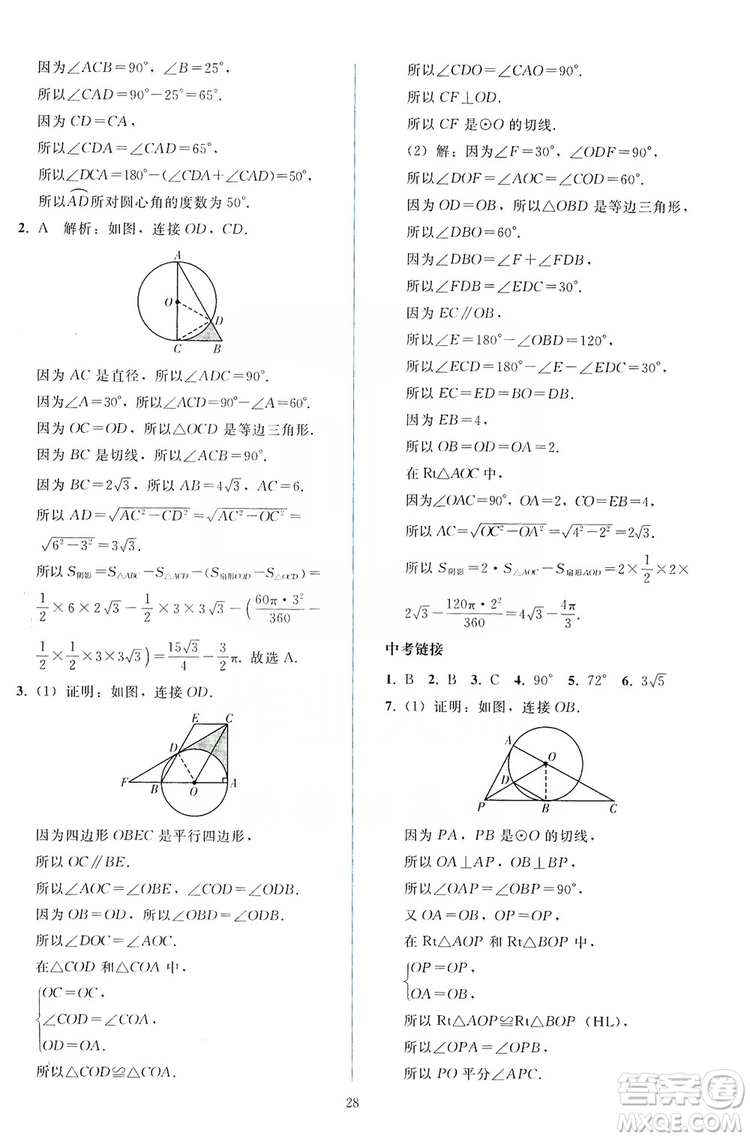 因为∠ACB=90°,∠B=25°,
所以∠CAD=90°-25°=65°.
因为 CD=CA,
所以∠CDA=∠CAD=65°,
所以∠DCA=180°-(∠CDA+∠CAD)=50°,
所以⌒AD所对圆心角的度数为 50°.
2. A 解析:如图,连接 OD,CD.
A
O
D
C
B
因为 AC 是直径,所以∠ADC=90°.
因为∠A=30°,所以∠ACD=90°-∠A=60°.
因为 OC=OD,所以△OCD 是等边三角形.
因为 BC 是切线,所以∠ACB=90°.
因为 BC=2√3,所以 AB=4√3,AC=6.
所以 AD=√(AC²-CD²)=√(AC²-OC²)=
√(6²-3²)=3√3.
所以 S阴影=S△ABC-S△ACD-(S扇形COD-S△OCD)=
1/2×6×2√3-1/2×3×3√3-(60π·3²/360-
1/2×1/2×3×3√3)=15√3/4-3/2π. 故选 A.
3. (1) 证明:如图,连接 OD.
E
C
D
F
B
O
A
因为四边形 OBEC 是平行四边形,
所以 OC∥BE.
所以∠AOC=∠OBE,∠COD=∠ODB.
因为 OB=OD,所以∠OBD=∠ODB.
所以∠DOC=∠AOC.
在△COD 和△COA 中,
{OC=OC,
∠COD=∠COA,
OD=OA.
所以△COD≌△COA.
所以∠CDO=∠CAO=90°.
所以 CF⊥OD.
所以 CF 是⊙O 的切线.
(2) 解:因为∠F=30°,∠ODF=90°,
所以∠DOF=∠AOC=∠COD=60°.
因为 OD=OB,所以△OBD 是等边三角形.
所以∠DBO=60°.
因为∠DBO=∠F+∠FDB,
所以∠FDB=∠EDC=30°.
因为 EC∥OB,
所以∠E=180°-∠OBD=120°,
所以∠ECD=180°-∠E-∠EDC=30°.
所以 EC=ED=BO=DB.
因为 EB=4,
所以 OB=OD=OA=2.
在 Rt△AOC 中,
因为∠OAC=90°,OA=2,CO=EB=4,
所以 AC=√(OC²-OA²)=√(4²-2²)=2√3.
所以 S阴影=2·S△AOC-S扇形AOD=2×1/2×2×
2√3-120π·2²/360=4√3-4π/3.
中考链接
1. B 2. B 3. C 4. 90° 5. 72° 6. 3√5
7. (1) 证明:如图,连接 OB.
A
O
D
P
B
C
因为 PA,PB 是⊙O 的切线,
所以 OA⊥AP,OB⊥BP,
所以∠OAP=∠OBP=90°,
又 OA=OB,
在 Rt△AOP 和 Rt△BOP 中,
{OP=OP,
OA=OB,
所以 Rt△AOP≌Rt△BOP (HL),
所以∠OPA=∠OPB,
所以 PO 平分∠APC.
28
答案圈
MXQE.COM